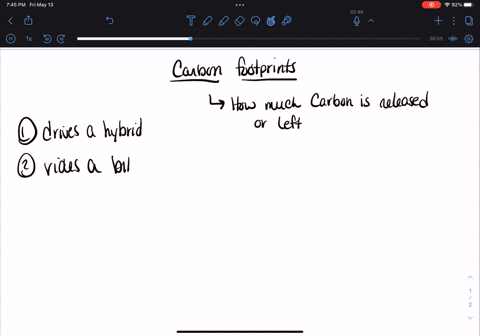 7:45 PM Fri May 13
92%
02:46
1x
00:55
Carbon footprints
↳ How much Carbon is released
or left
① drives a hybrid
② rides a bil
1
2